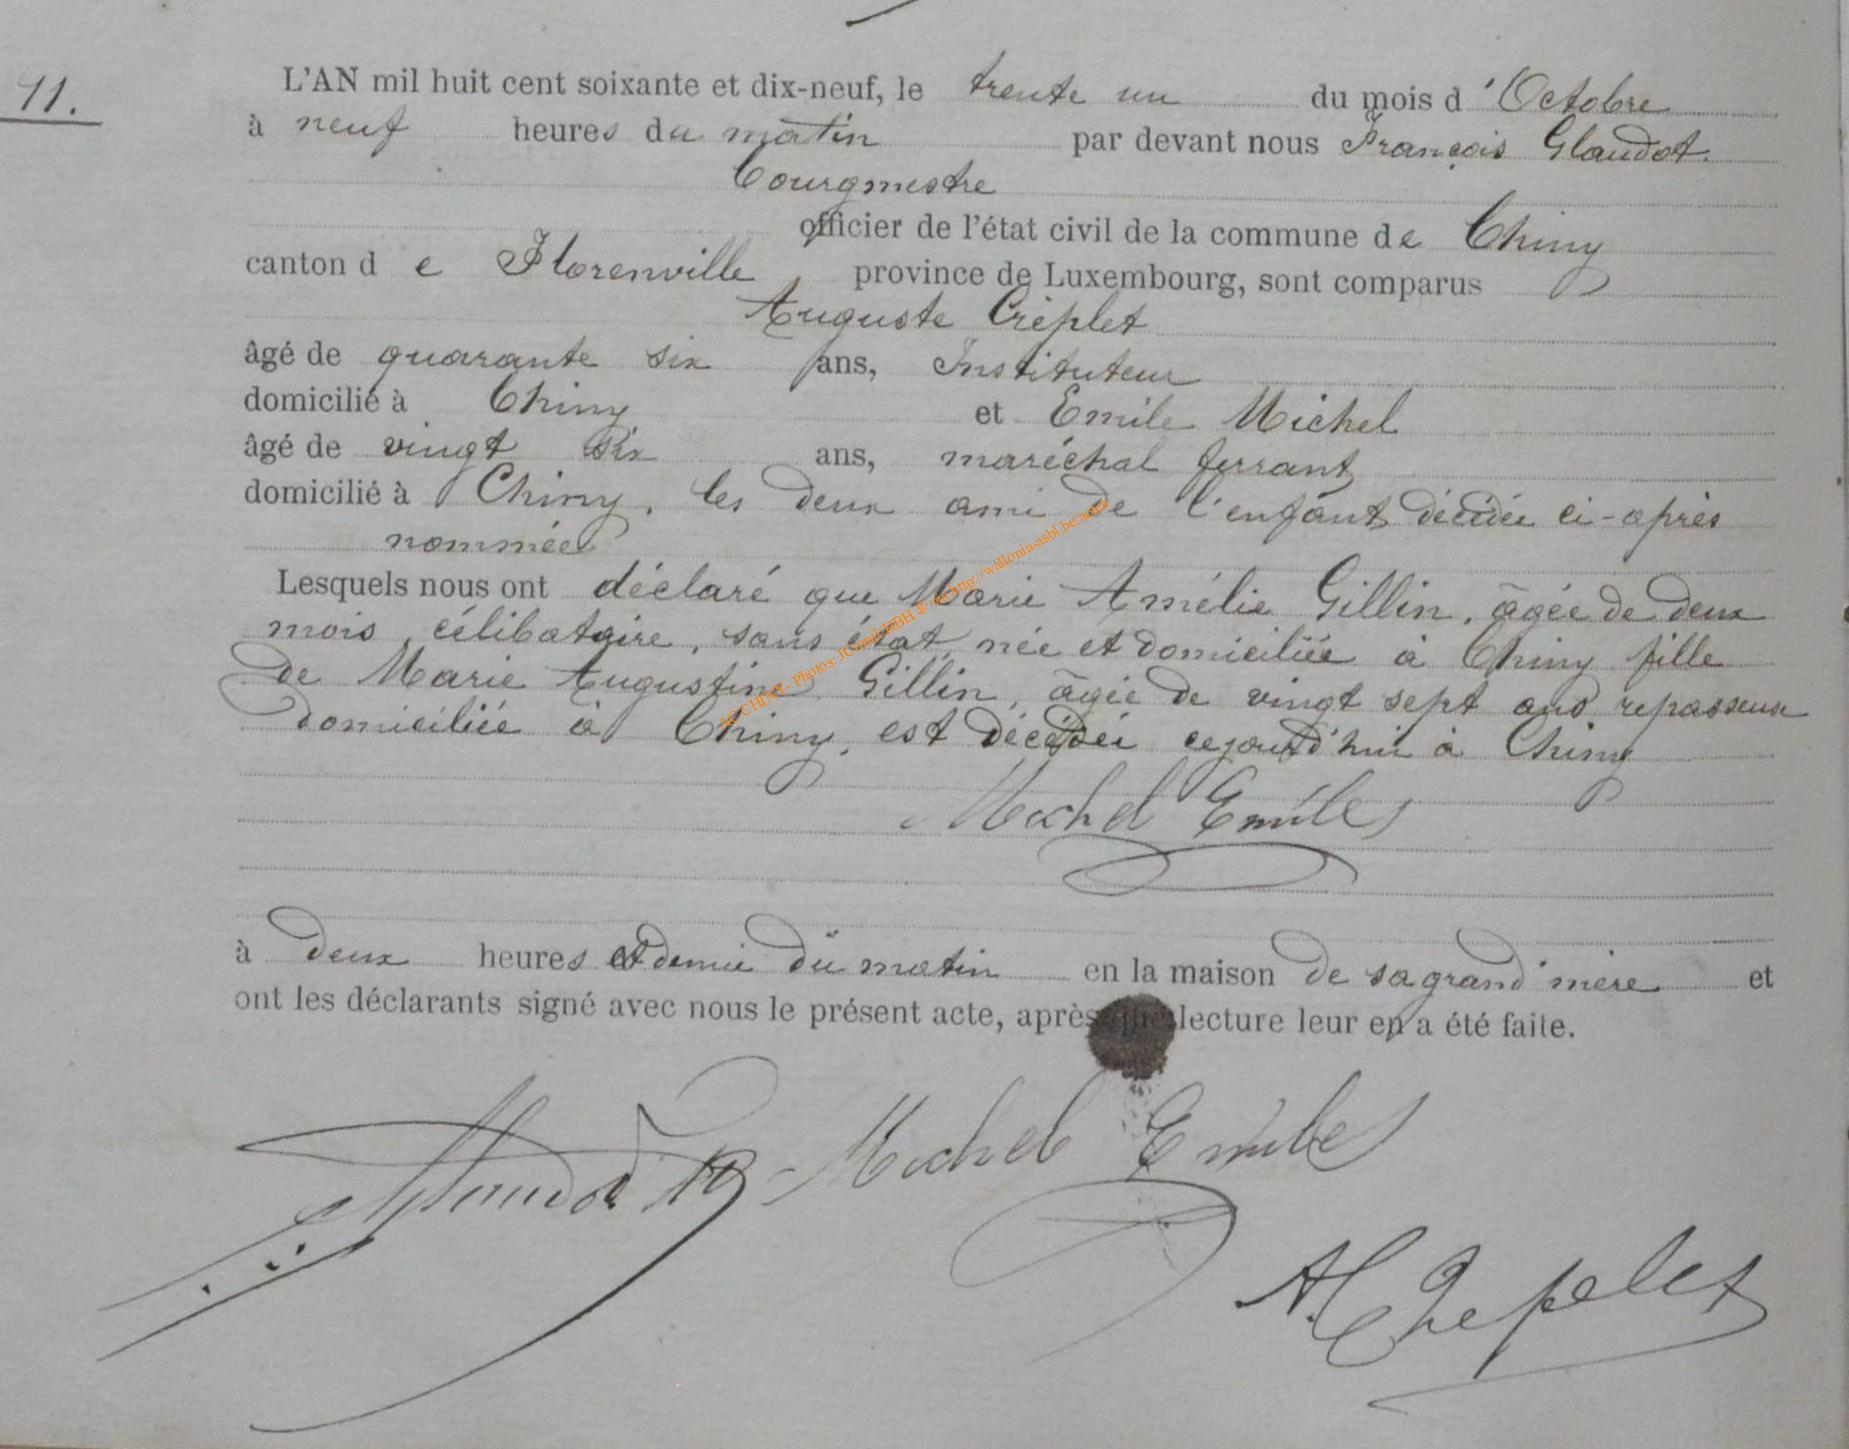 11.
L'AN mil huit cent soixante et dix-neuf, le trente un du mois d'Octobre
à neuf heures du matin par devant nous François Glaudot.
Bourgmestre
officier de l'état civil de la commune de Chiny
canton de Florenville, province de Luxembourg, sont comparus
Auguste Créplet
âgé de quarante six ans, Instituteur
domicilié à Chiny et Emile Michel
âgé de vingt six ans, maréchal ferrant
domicilié à Chiny, les deux ami de l'enfant décédée ci-après
nommée
Lesquels nous ont déclaré que Marie Amélie Gillin, âgée de deux
mois, célibataire, sans état, née et domiciliée à Chiny fille
de Marie Augustine Gillin, âgée de vingt sept ans repasseuse
domiciliée à Chiny, est décédée cejourd'hui à Chiny
Michel Emile
à deux heures et demie du matin en la maison de sa grand'mère et
ont les déclarants signé avec nous le présent acte, après que lecture leur en a été faite.
Michel Emile